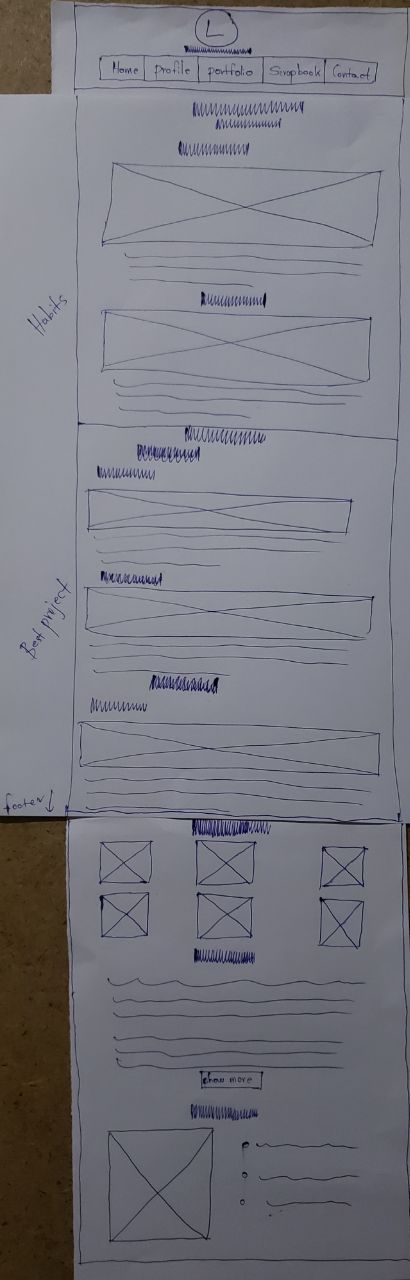 L
Home Profile portfolio Scrapbook Contact
Habits
Best project
footer ↓
show more